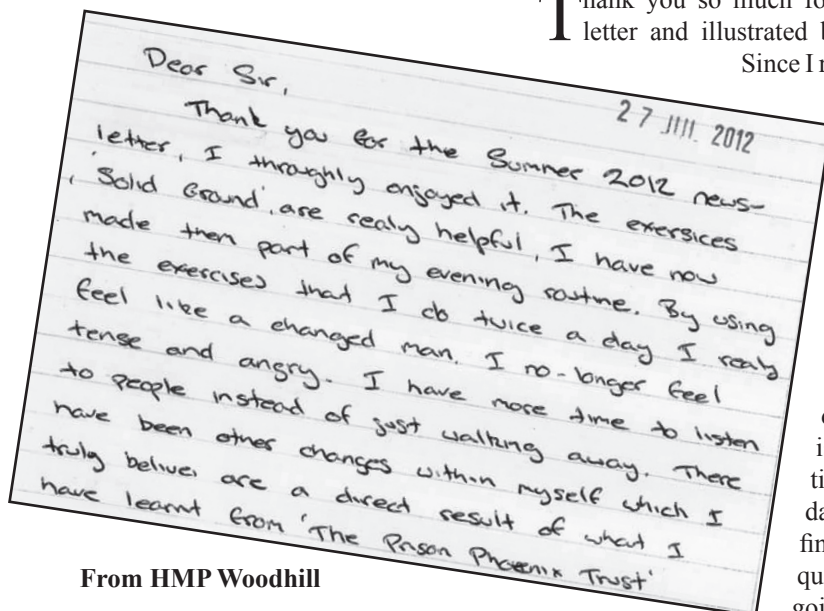 hank you so much fo
T
letter and illustrated b
Since I r
27 JUL 2012
Dear Sir,
Thank you for the Summer 2012 news-
letter, I throughly enjoyed it. The exersices
'Solid Ground', are realy helpful, I have now
made them part of my evening routine. By using
the exercises that I do twice a day I realy
feel like a changed man. I no-longer feel
tense and angry. I have more time to listen
to people instead of just walking away. There
have been other changes within myself which I
truly belive, are a direct result of what I
have learnt from 'The Prison Phoenix Trust'
From HMP Woodhill
i
ti
da
fin
qu
goi